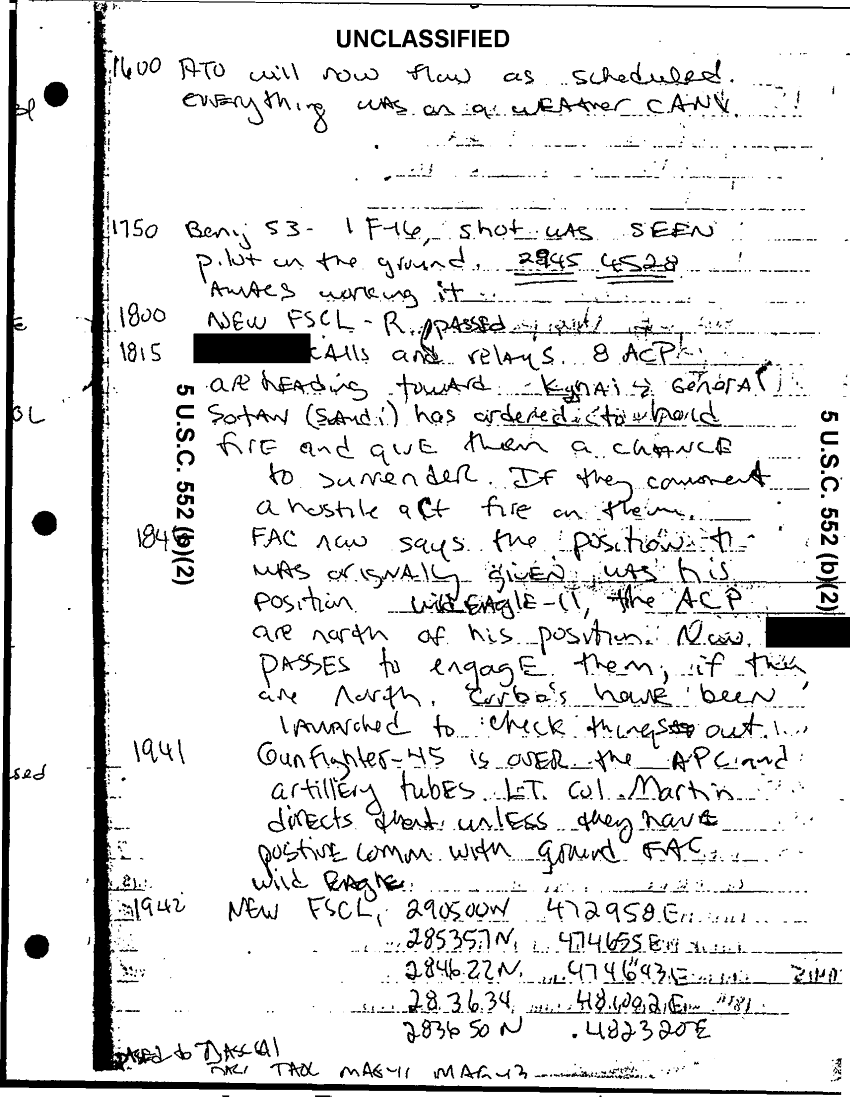 UNCLASSIFIED
1600 ATO will now flow as scheduled.
everything was on a WEATHER CANX.
1750 Benji 53- 1 F-16, shot was SEEN
pilot on the ground. 2845 4528
AWACS working it
1800 NEW FSCL - R, passed
1815 CAlls and relays. 8 ACP
are HEADING toward General
(SAudi) has ordered to hold
fire and give them a CHANCE
to surrender. If they comment
a hostile act fire on them.
184 FAC now says the position
WAS origNAlly given, was his
position wild EAGLE-11, the ACP
are north of his position. Now
PASSES to engage them, if they
are North. Corba's have been
launched to check things out.
1941 Gunfighter-45 is over the APC and
artillery tubes. LT. Col. Martin
directs unless they have
positive comm with ground FAC
wild EAGle
1942 NEW FSCL, 290500N 472958E
285357N, 474655E
284622N, 474643E
283634,
283650N 482320E
MAG-11 MAG-13
5 U.S.C. 552 (b)(2)
5 U.S.C. 552 (b)(2)
sed